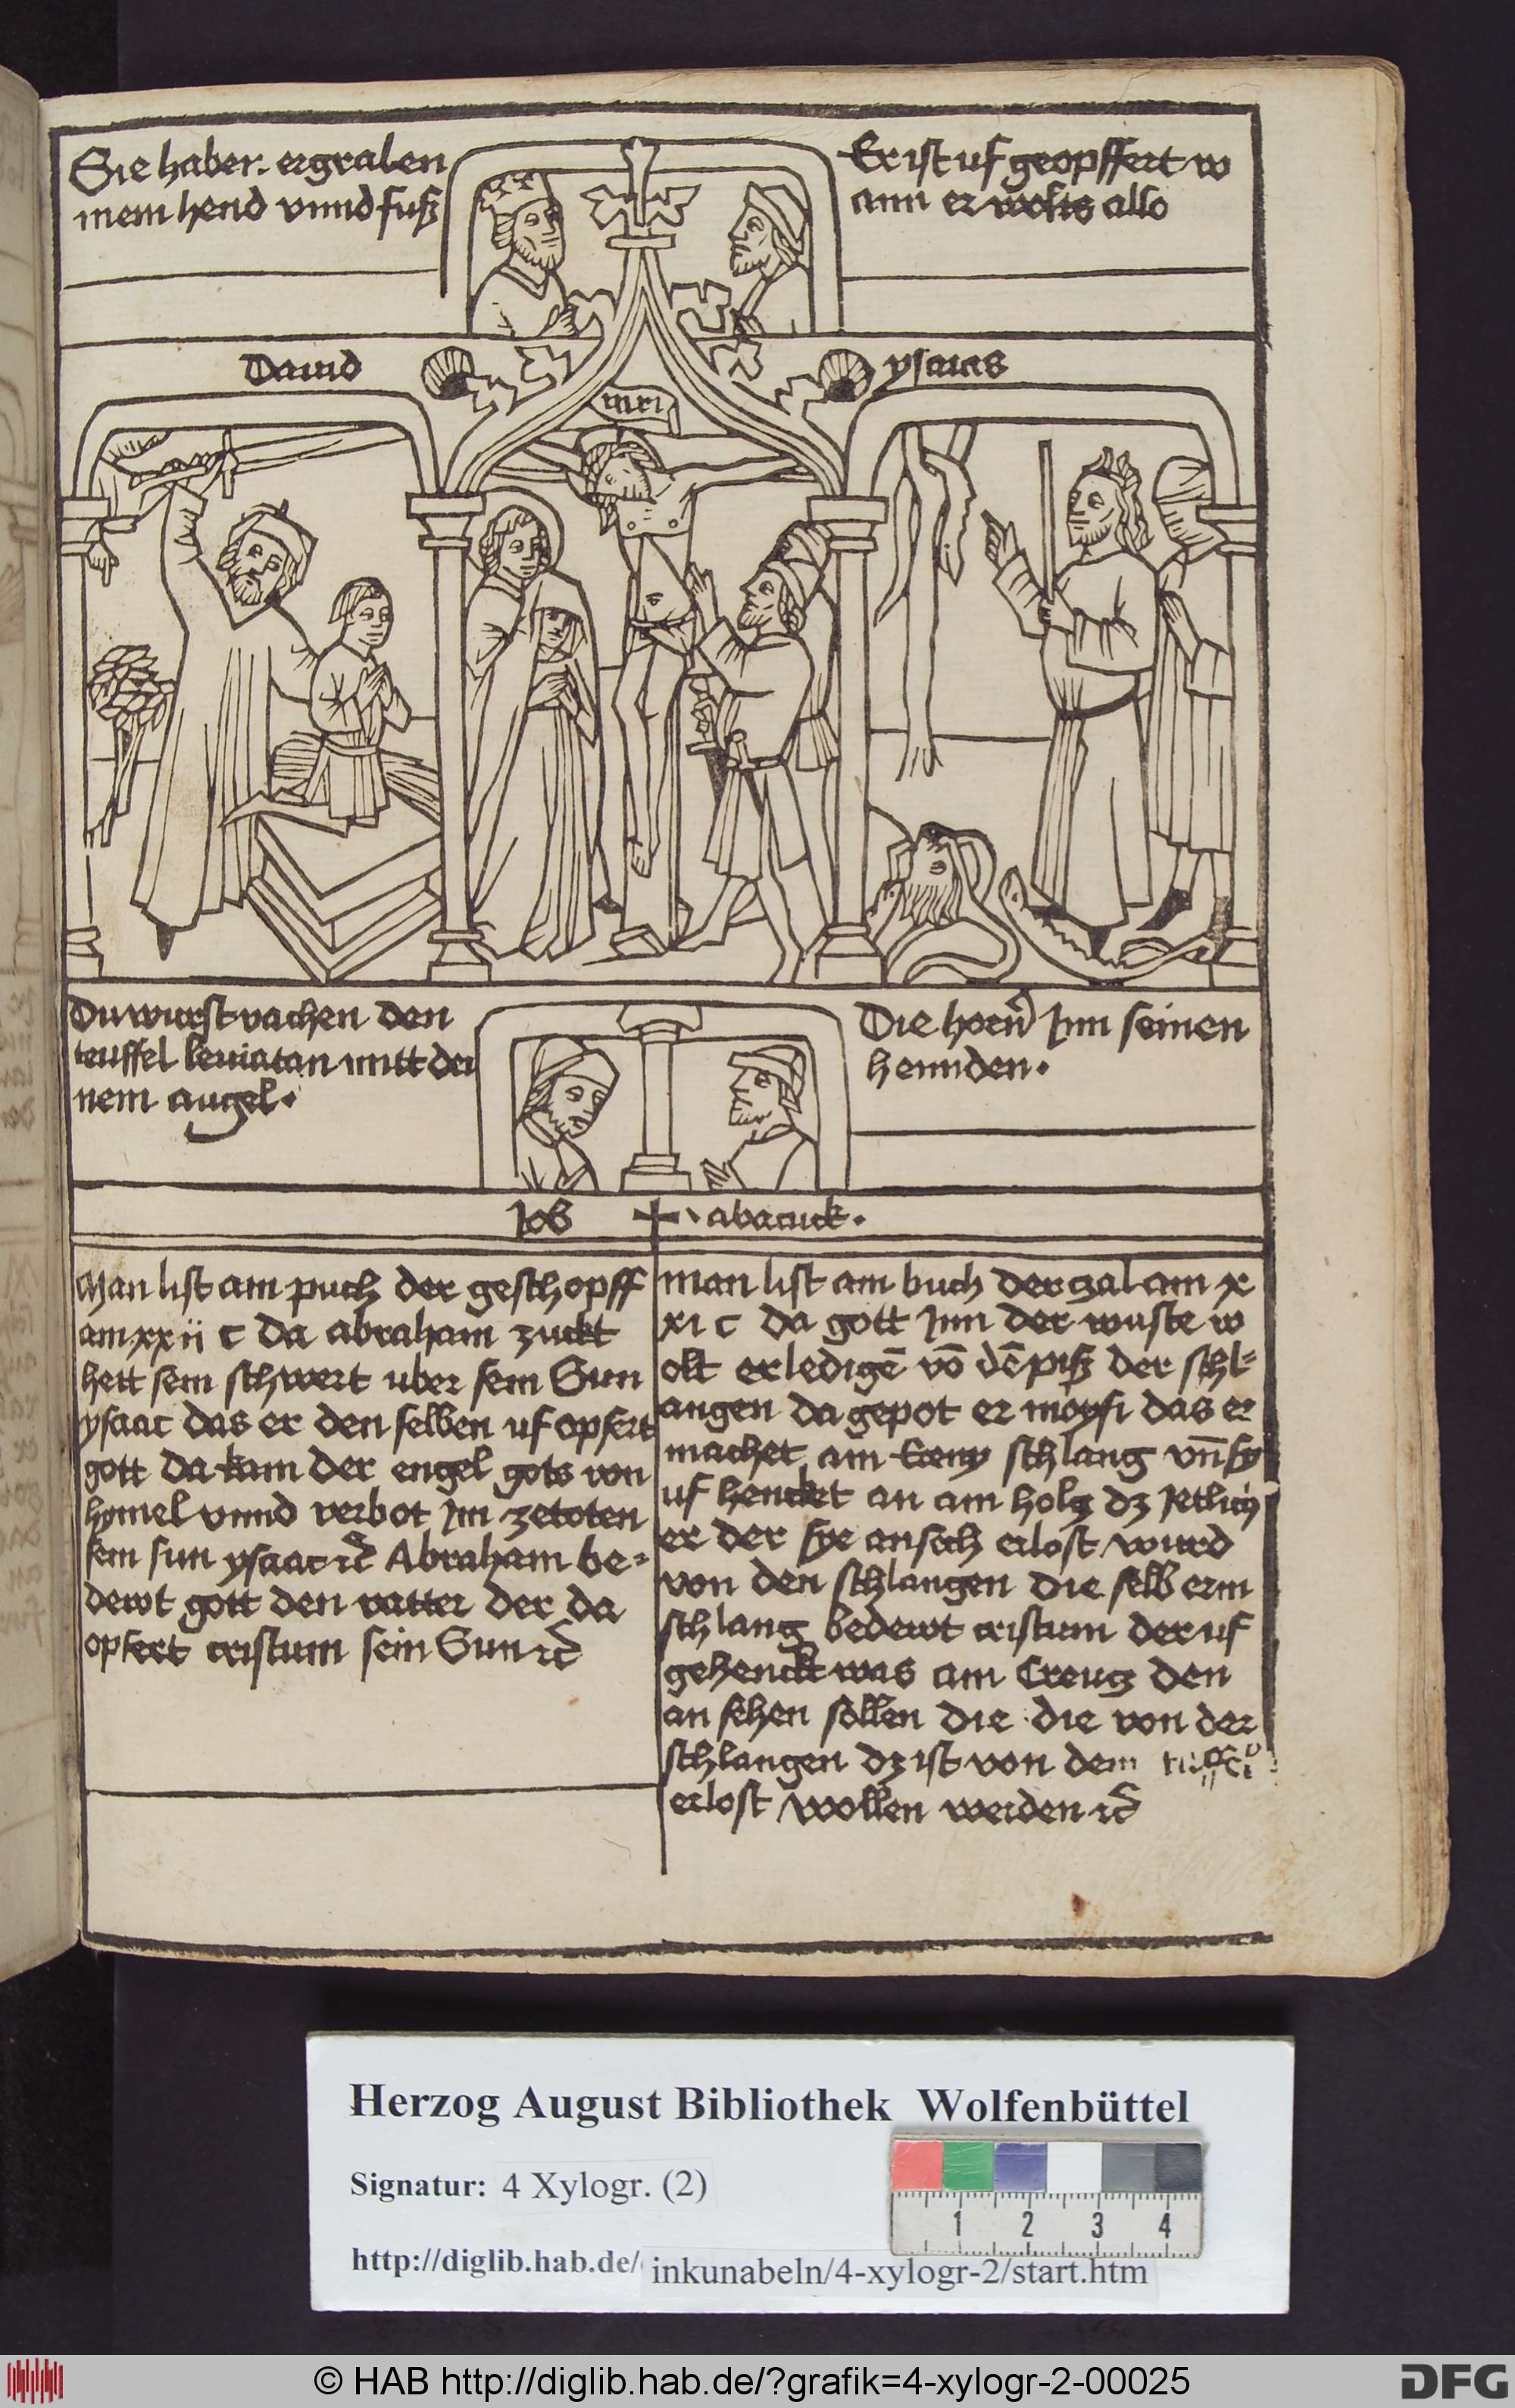 Sie haben ergralen
mein hend vnnd fuß
Er ist uf geopffert w
ann er wolts allso
Dauid
ysaias
inri
Du wurst vachen den
teuffel leuiatan mitt dei
nem angel.
Die horn̄ Jnn seinen
hennden.
Job + abacuck.
Man list am puch der geschopff
am xxii c da abraham zuckt
hett sein schwert uber sein Sun
ysaac das er den selben uf opfert
gott da kam der engel gots von
hymel vnnd verbot im ze toten
sein sun ysaac ꝛc̄ Abraham be=
dewt gott den vatter der da
opfert cristum sein Sun ꝛc̄
man list am buch der zal am x
xi c da gott Jnn der wuste w
olt erledigē vō dē piß der schl=
angen da gepot er moysi das er
machet am Ereny schlang vn̄ sy
uf hencket an am holz dz Jetlich
er der sye ansech erlost wurd
von den schlangen Die selb erin
schlang bedewt cristum der uf
gehenckt was am Creutz den
an sehen sollen die die von der
schlangen dz ist von dem
erlost wollen werden ꝛc̄
Herzog August Bibliothek Wolfenbüttel
Signatur: 4 Xylogr. (2)
1 2 3 4
http://diglib.hab.de/ inkunabeln/4-xylogr-2/start.htm
© HAB http://diglib.hab.de/?grafik=4-xylogr-2-00025
DFG